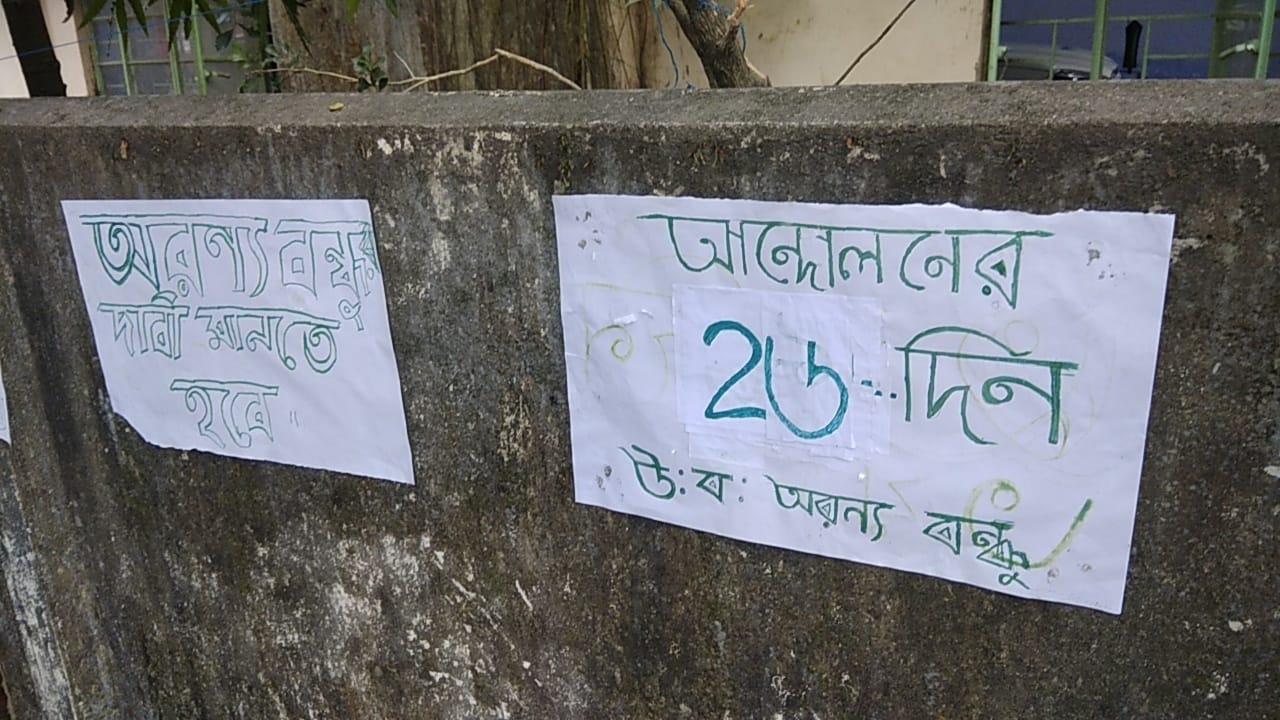 অরণ্য বন্ধুর
দাবী মানতে
হবে
আন্দোলনের
২৬ দিন
উ: ব: অরন্য বন্ধু